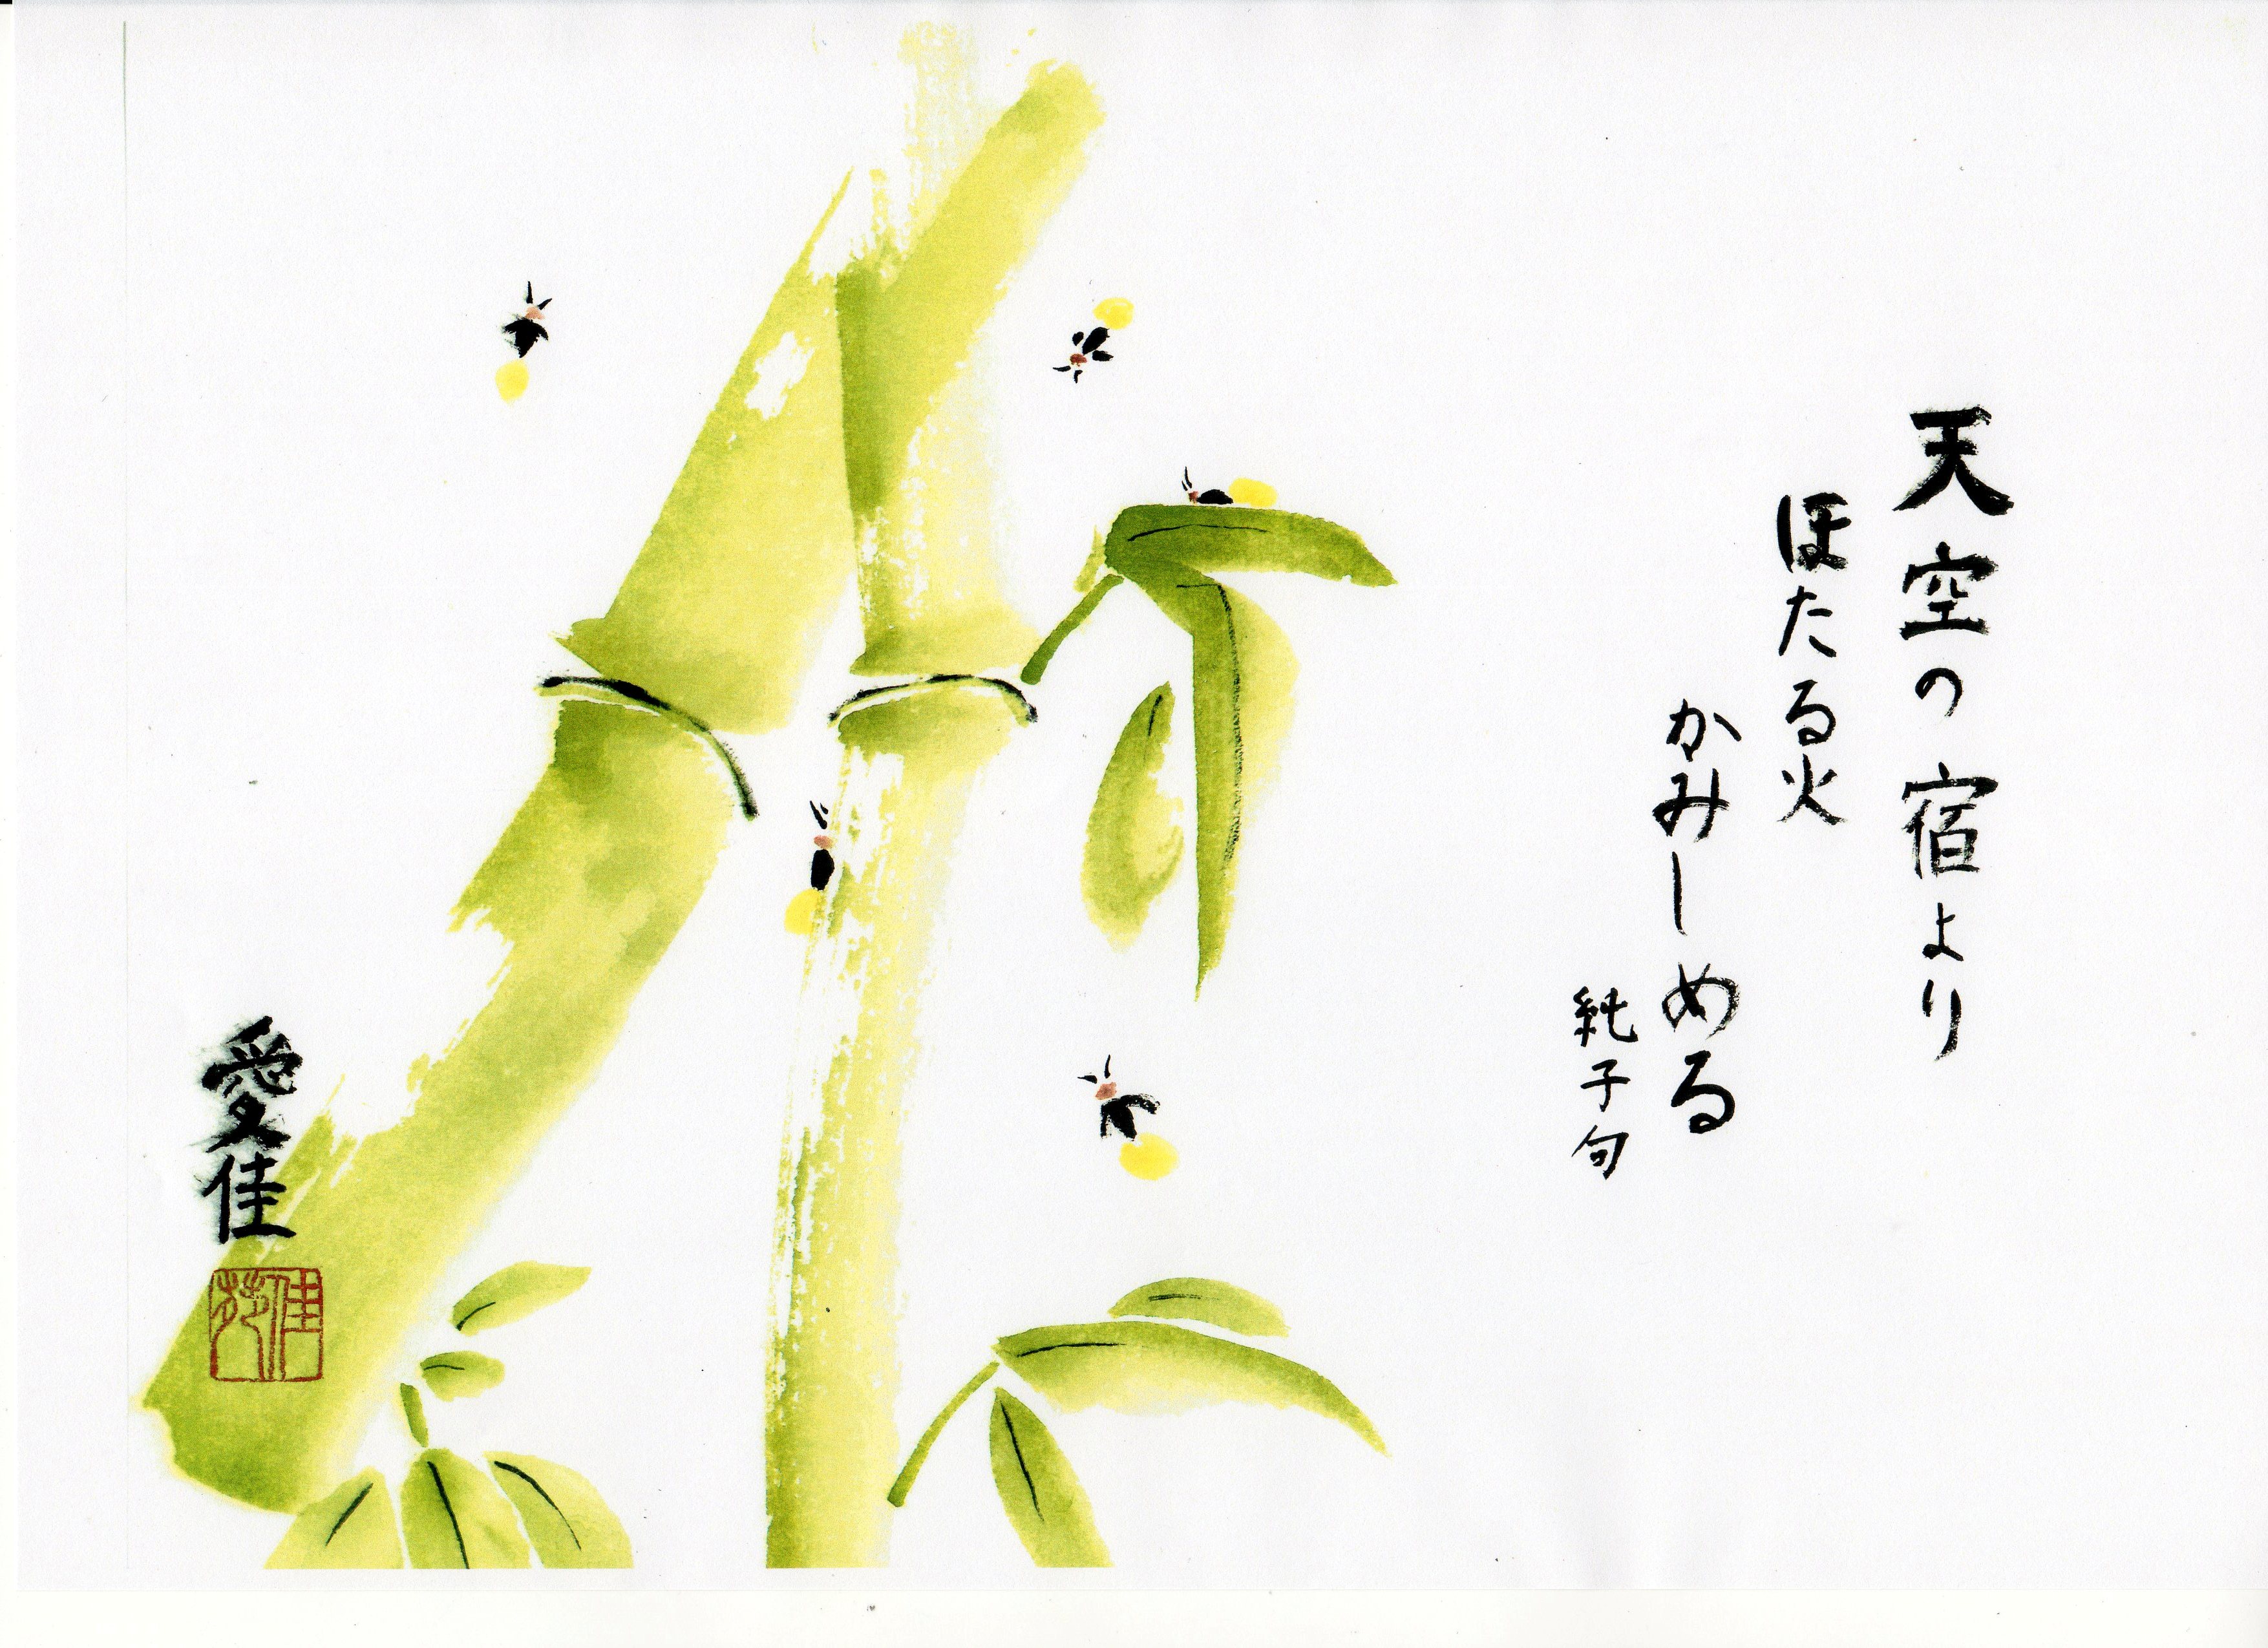 天空の宿より
ほたる火
かみしめる
純子句
愛佳